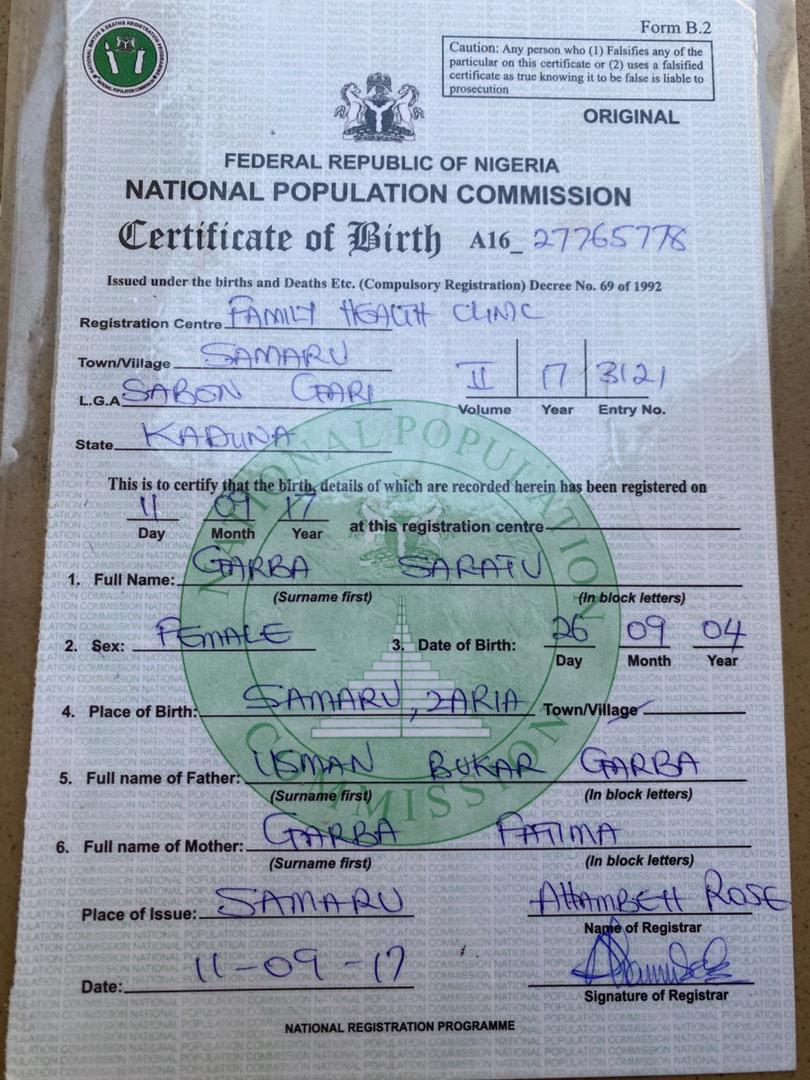 Form B.2
NATIONAL BIRTHS & DEATHS REGISTRATION PROGRAMME
NATIONAL POPULATION COMMISSION
Caution: Any person who (1) Falsifies any of the
particular on this certificate or (2) uses a falsified
certificate as true knowing it to be false is liable to
prosecution
ORIGINAL
FEDERAL REPUBLIC OF NIGERIA
NATIONAL POPULATION COMMISSION
Certificate of Birth A16_ 27765778
Issued under the births and Deaths Etc. (Compulsory Registration) Decree No. 69 of 1992
Registration Centre FAMILY HEALTH CLINIC
Town/Village SAMARU
L.G.A SABON GARI
II 17 3121
Volume Year Entry No.
State KADUNA
NATIONAL POPULATION COMMISSION
This is to certify that the birth, details of which are recorded herein has been registered on
11 09 17 at this registration centre
Day Month Year
1. Full Name: GARBA SARATU
(Surname first) (In block letters)
2. Sex: FEMALE 3. Date of Birth: 26 09 04
Day Month Year
4. Place of Birth: SAMARU, ZARIA Town/Village
5. Full name of Father: USMAN BUKAR GARBA
(Surname first) (In block letters)
6. Full name of Mother: GARBA FATIMA
(Surname first) (In block letters)
Place of Issue: SAMARU
ROSE
Name of Registrar
Date: 11-09-17
Signature of Registrar
NATIONAL REGISTRATION PROGRAMME